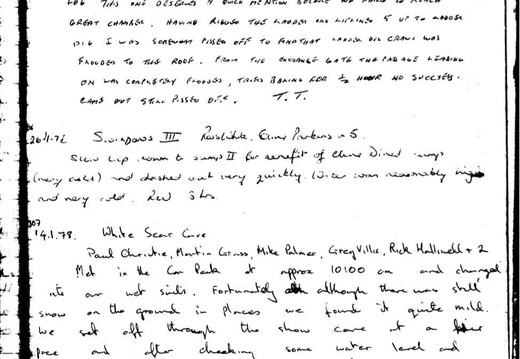 LOG THIS ONE DESERVES A QUICK MENTION BECAUSE WE FAILED TO REACH
GREAT CHAMBER. HAVING RIGGED THE LADDER AND LIFELINED 5 UP TO LADDER
DIG I WAS SOMEWHAT PISSED OFF TO FIND THAT LADDER DIG CRAWL WAS
FLOODED TO THE ROOF. FROM THE ENTRANCE GATE THE PASSAGE LEADING
ON WAS COMPLETELY FLOODED, TRIED BAILING FOR ½ HOUR NO SUCCESS.
CAME OUT STILL PISSED OFF. T.T.
Swildons III
Slow trip down to sump II for benefit of
(very cold) and dashed out very quickly. Water was reasonably
and very cold. 3 hrs.
14.1.78. White Scar Cave
Paul Christie, Martin Grass, Mike Palmer, Greg Villis, Rick Halliwell + 2
Met in the Car Park at approx 10:00 am and changed
into our wet suits. Fortunately although there was still
snow on the ground in places we found it quite mild.
We set off through the show cave at a
pace and after checking some water level and